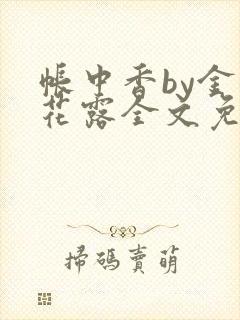 帳中香by金
花露全文免
掃碼賣萌